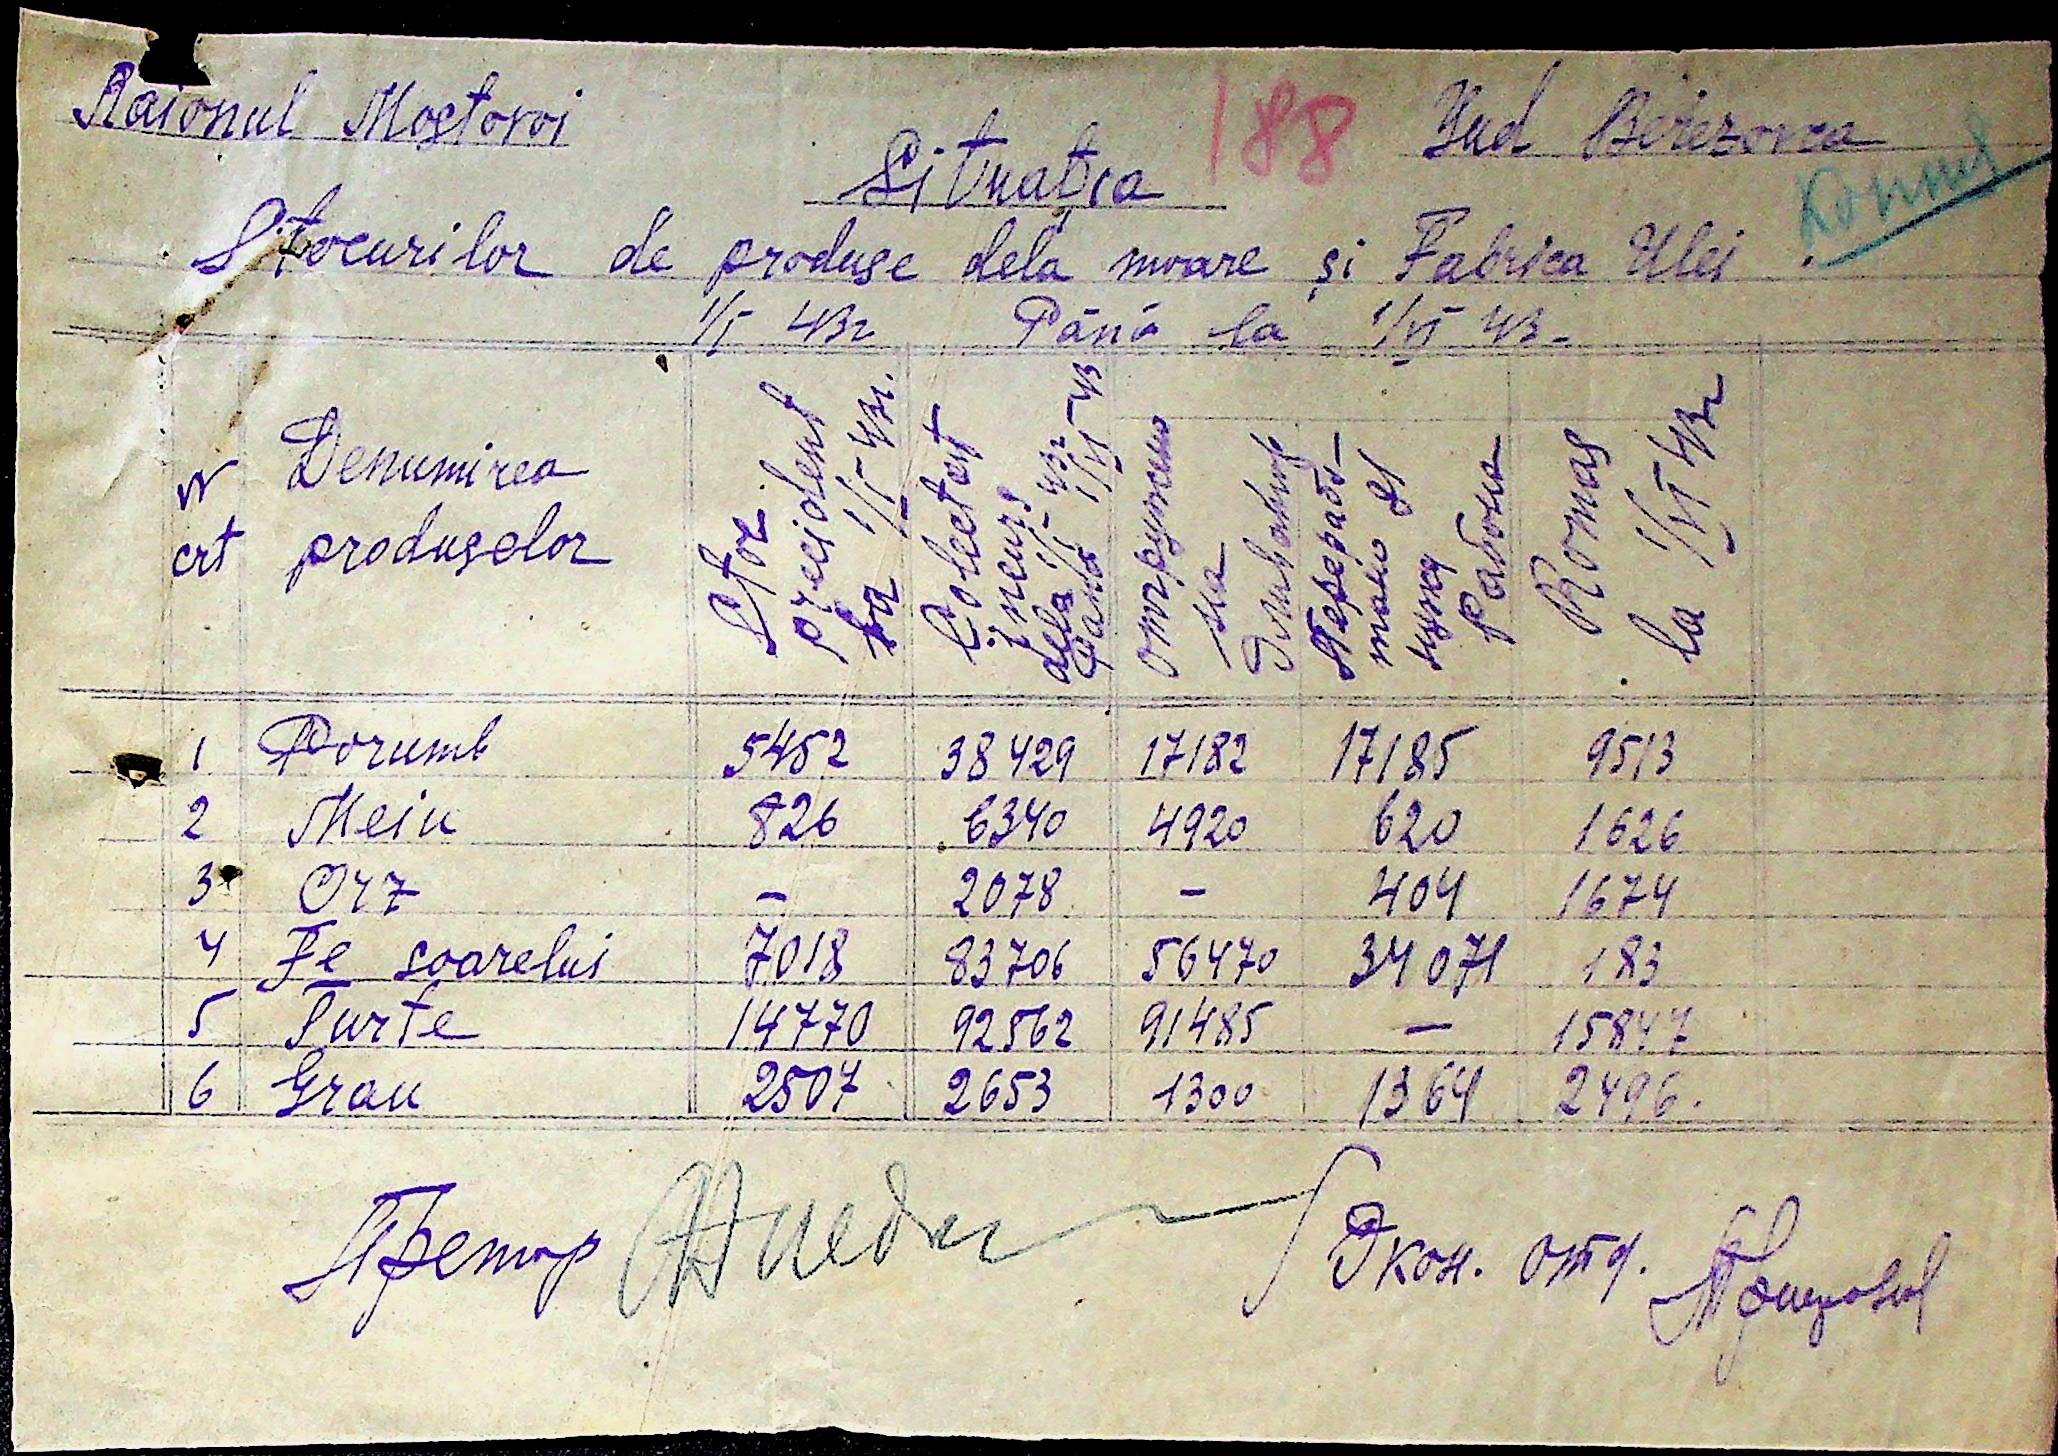 Raionul Mostovoi
188
Jud Berezovca
Situația
Stocurilor de produse dela moare și Fabrica Ulei
1/V 43г Până la 1/VI 43-
nr crt
Denumirea produselor
Stoc precident la 1/V 43г.
Colectat incurs dela 1/V-43г Pană 1/VI-43
отгружено на
Переработано для нужд Района
Romas la 1/VI 43г
1 Porumb 5452 38429 17182 17185 9513
2 Meiu 826 6340 4920 620 1626
3 Orz - 2078 - 404 1674
4 Fl soarelui 7018 83706 56470 34071 183
5 Turte 14770 92562 91485 - 15847
6 Grau 2507 2653 1300 1364 2496.
Претор
Экон. отд.